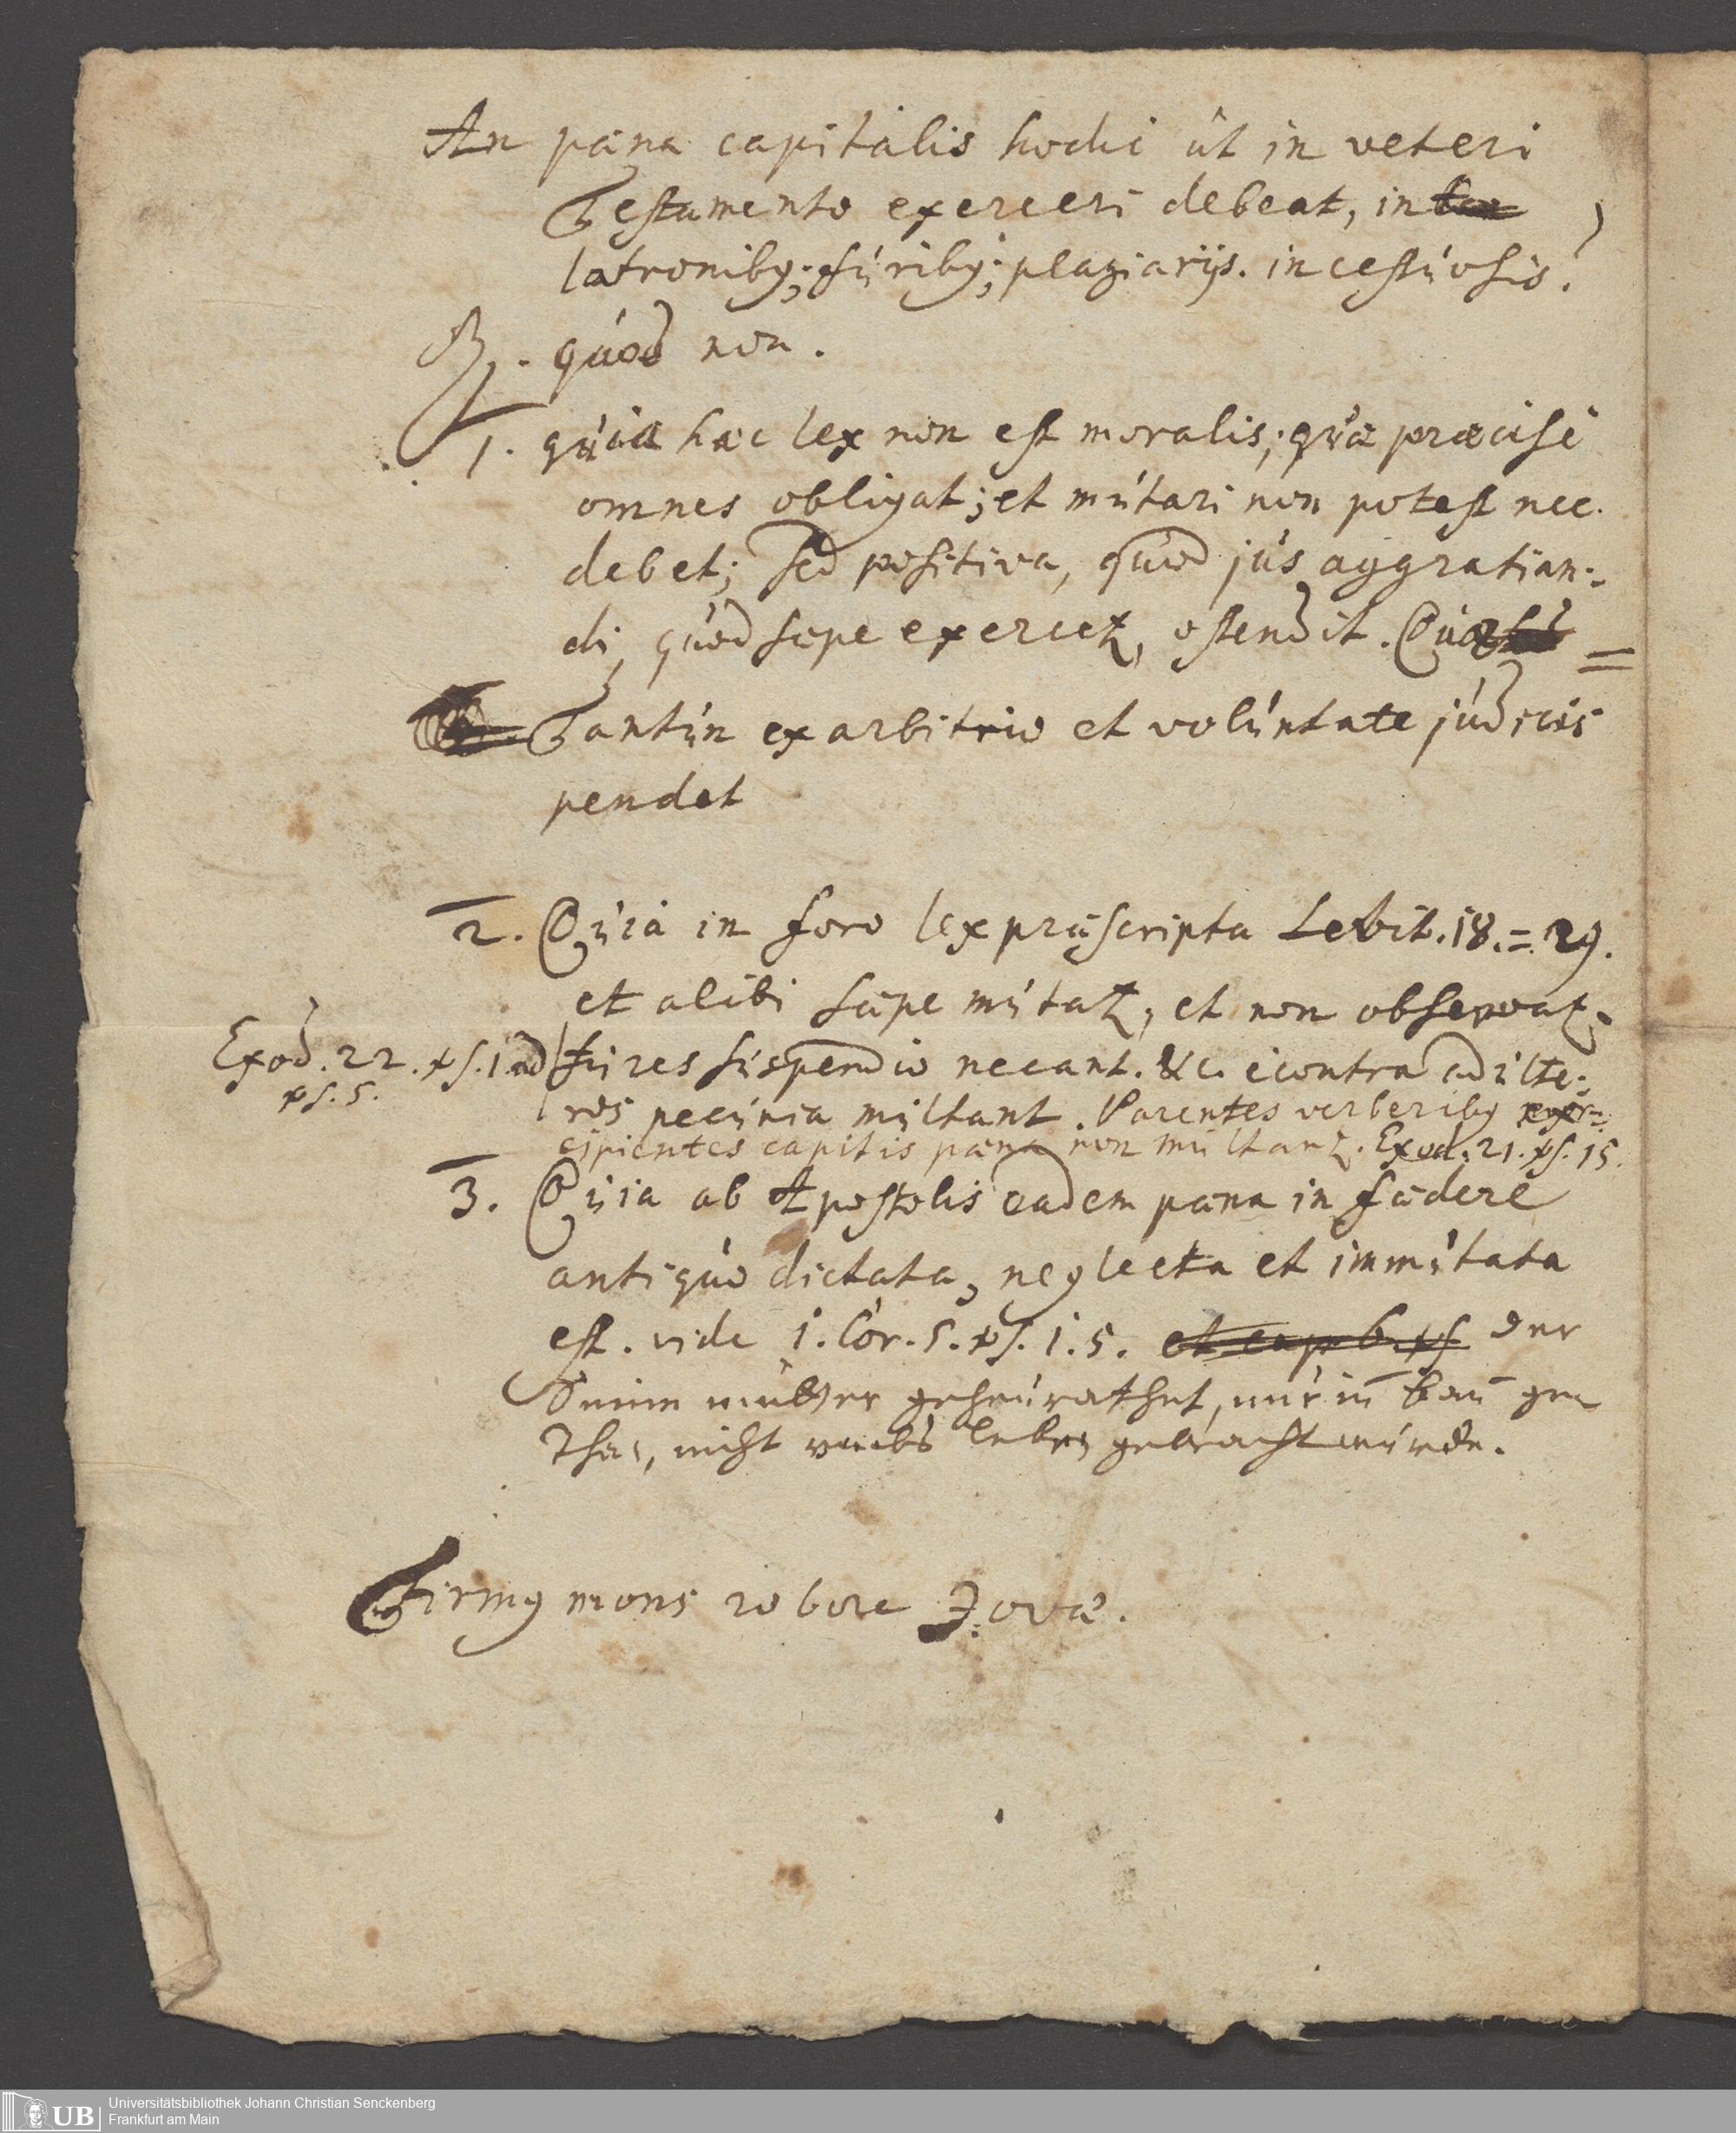 An pæna capitalis hodie ut in veteri
Testamento exerceri debeat, in
latronibꝰ; furibꝰ; plagiariis. incestuosis?
℟. quod non.
1. quia hæc lex non est moralis; quæ præcise
omnes obligat; et mutari non potest nec.
debet; sed positiva, quod jus aggratian:
di, quod sæpe exercetꝛ, ostendit.
Tantùm ex arbitrio et voluntate judicis
pendet
2. Quia in foro lex præscripta Levit. 18. = 29.
et alibi sæpe mutatꝛ, et non observatꝛ
Exod. 22. vs. 1. ad
vs. 5.
fures suspendio necant. &c. econtra adulte:
ros pecunia multant. Parentes verberibꝰ
cipientes capitis pæna non multantꝛ. Exod. 21. vs. 15.
3. Quia ab Apostolis eadem pæna in fædere
antiquo dictata, neglecta et immutata
est. vide 1. Cor. 5. vs. 1. 5. et cap 6. vs der
seine mutter geheurathet, nur in ban ge
than, nicht umbs leben gebracht wurde.
Firmꝰ mons robore Jovæ.
UB
Universitätsbibliothek Johann Christian Senckenberg
Frankfurt am Main